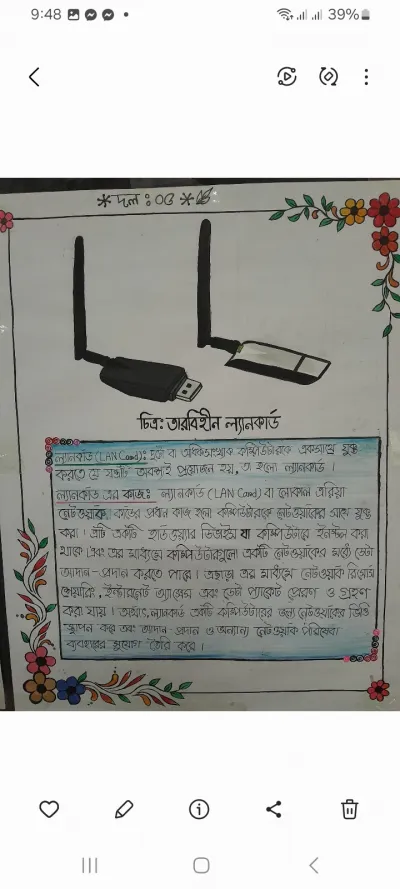 9:48
39%
*দল : ০৫ *
চিত্র: তারবিহীন ল্যানকার্ড
ল্যানকার্ড (LAN Card): দুটো বা অধিকসংখ্যক কম্পিউটারকে একসাথে যুক্ত
করতে যে যন্ত্রটি অবশ্যই প্রয়োজন হয়, তা হলো ল্যানকার্ড ।
ল্যানকার্ড এর কাজ: ল্যানকার্ড (LAN Card) বা লোকাল এরিয়া
নেটওয়ার্ক কার্ডের প্রধান কাজ হলো কম্পিউটারকে নেটওয়ার্কের সাথে যুক্ত
করা । এটি একটি হার্ডওয়্যার ডিভাইস যা কম্পিউটারে ইনস্টল করা
থাকে এবং এর মাধ্যমে কম্পিউটারগুলো একটি নেটওয়ার্কের মধ্যে ডেটা
আদান-প্রদান করতে পারে । এছাড়া এর মাধ্যমে নেটওয়ার্ক রিসোর্স
শেয়ারিং, ইন্টারনেট অ্যাক্সেস এবং ডেটা প্যাকেট প্রেরণ ও গ্রহণ
করা যায় । অর্থাৎ, ল্যানকার্ড একটি কম্পিউটারের জন্য নেটওয়ার্কের ভিত্তি
স্থাপন করে এবং আদান-প্রদান ও অন্যান্য নেটওয়ার্ক পরিষেবা
ব্যবহারের সুযোগ তৈরি করে ।